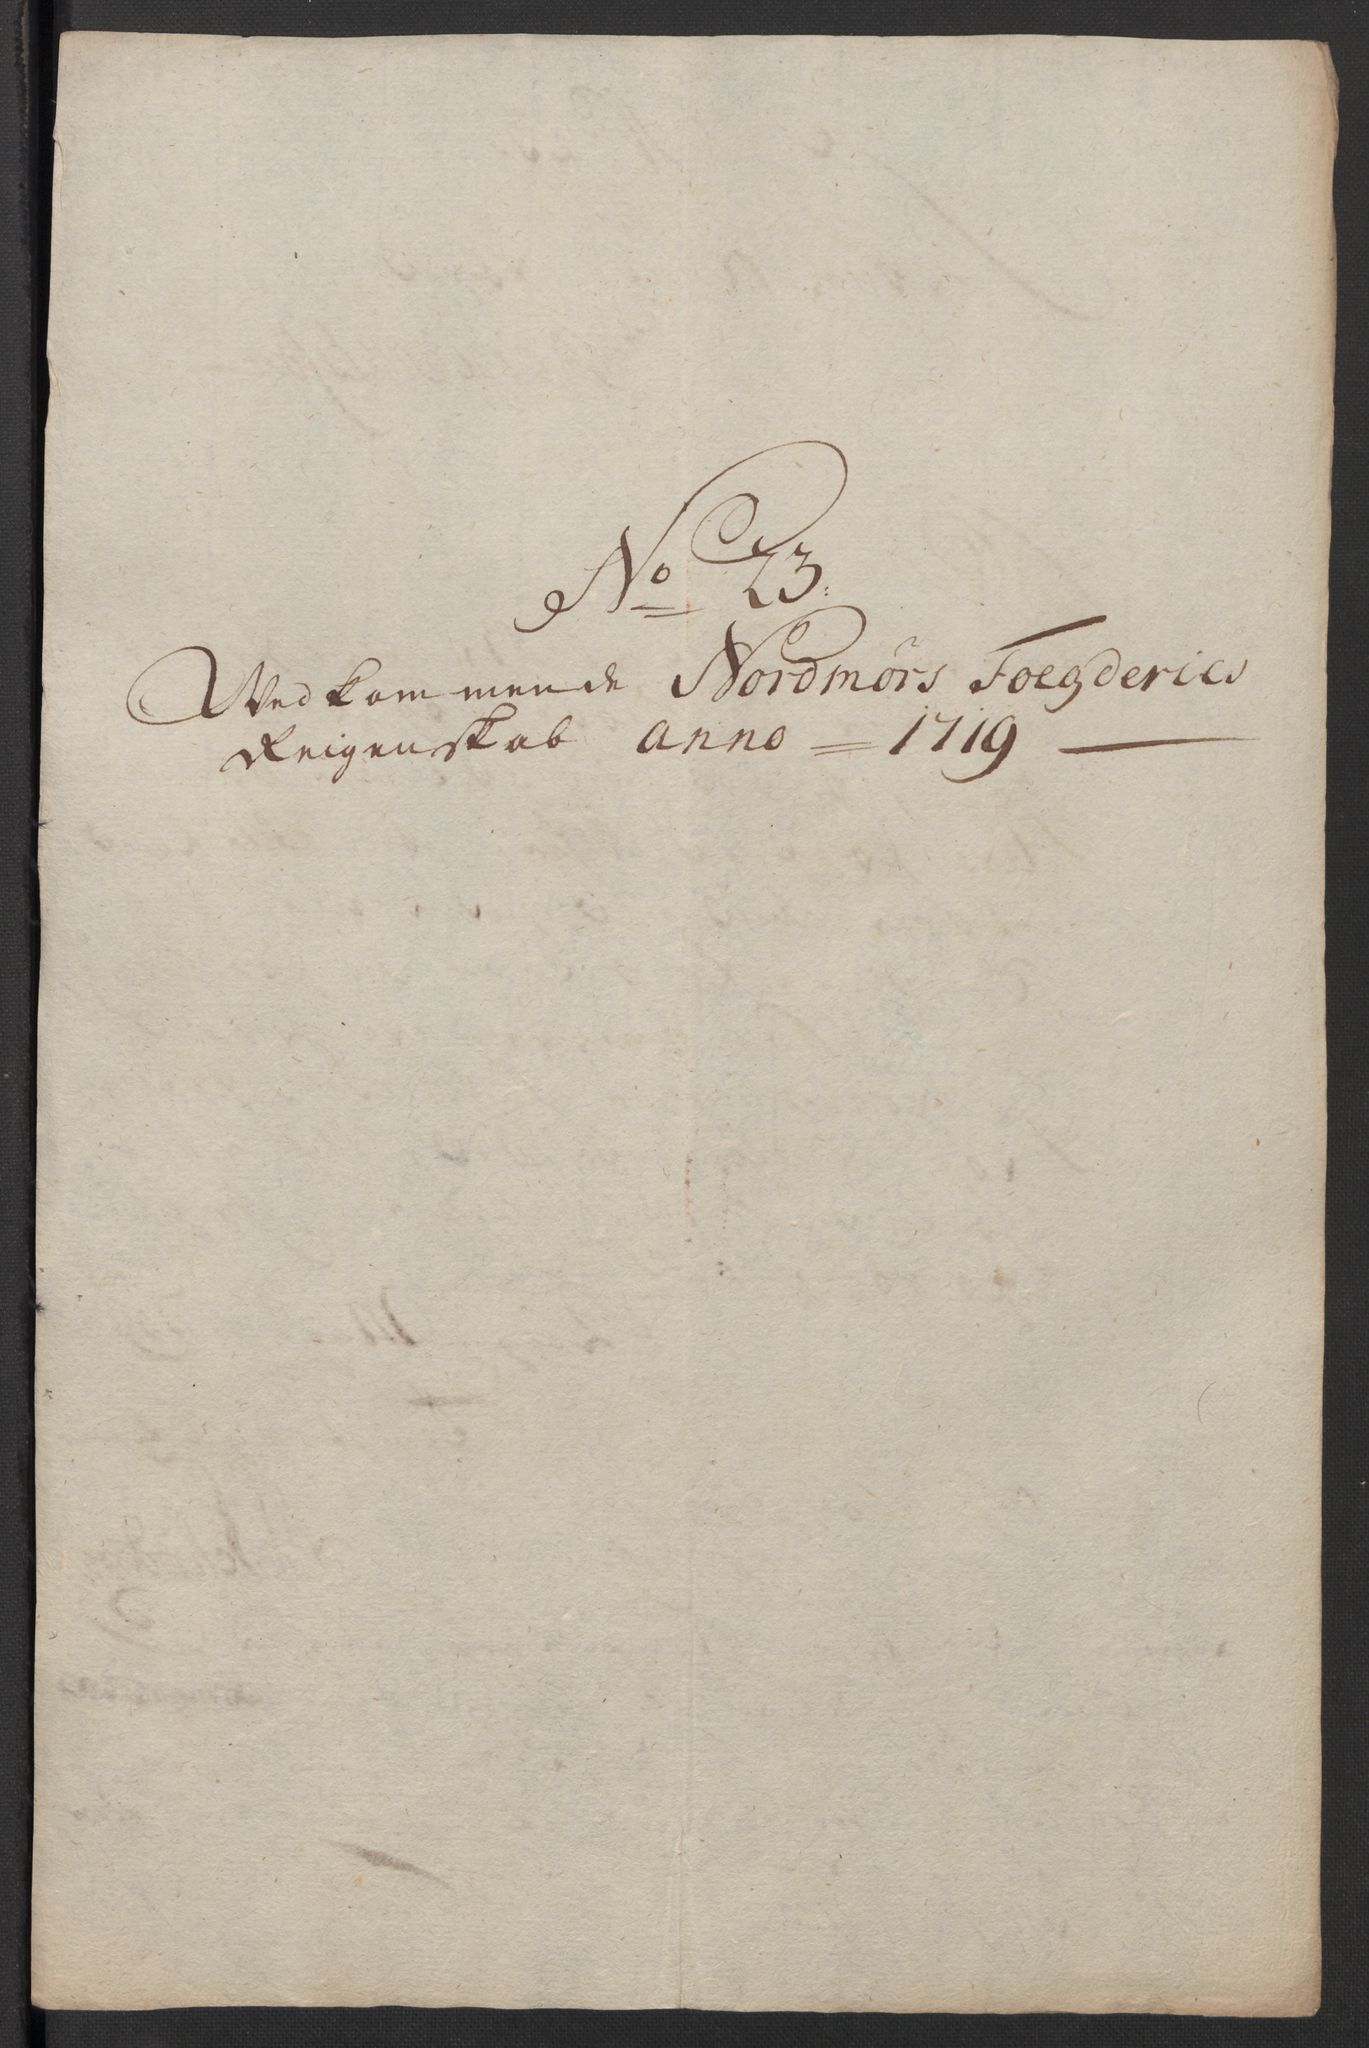 No 23.
Wedkommende Nordmörs Foegderies
Reigenskab anno = 1719